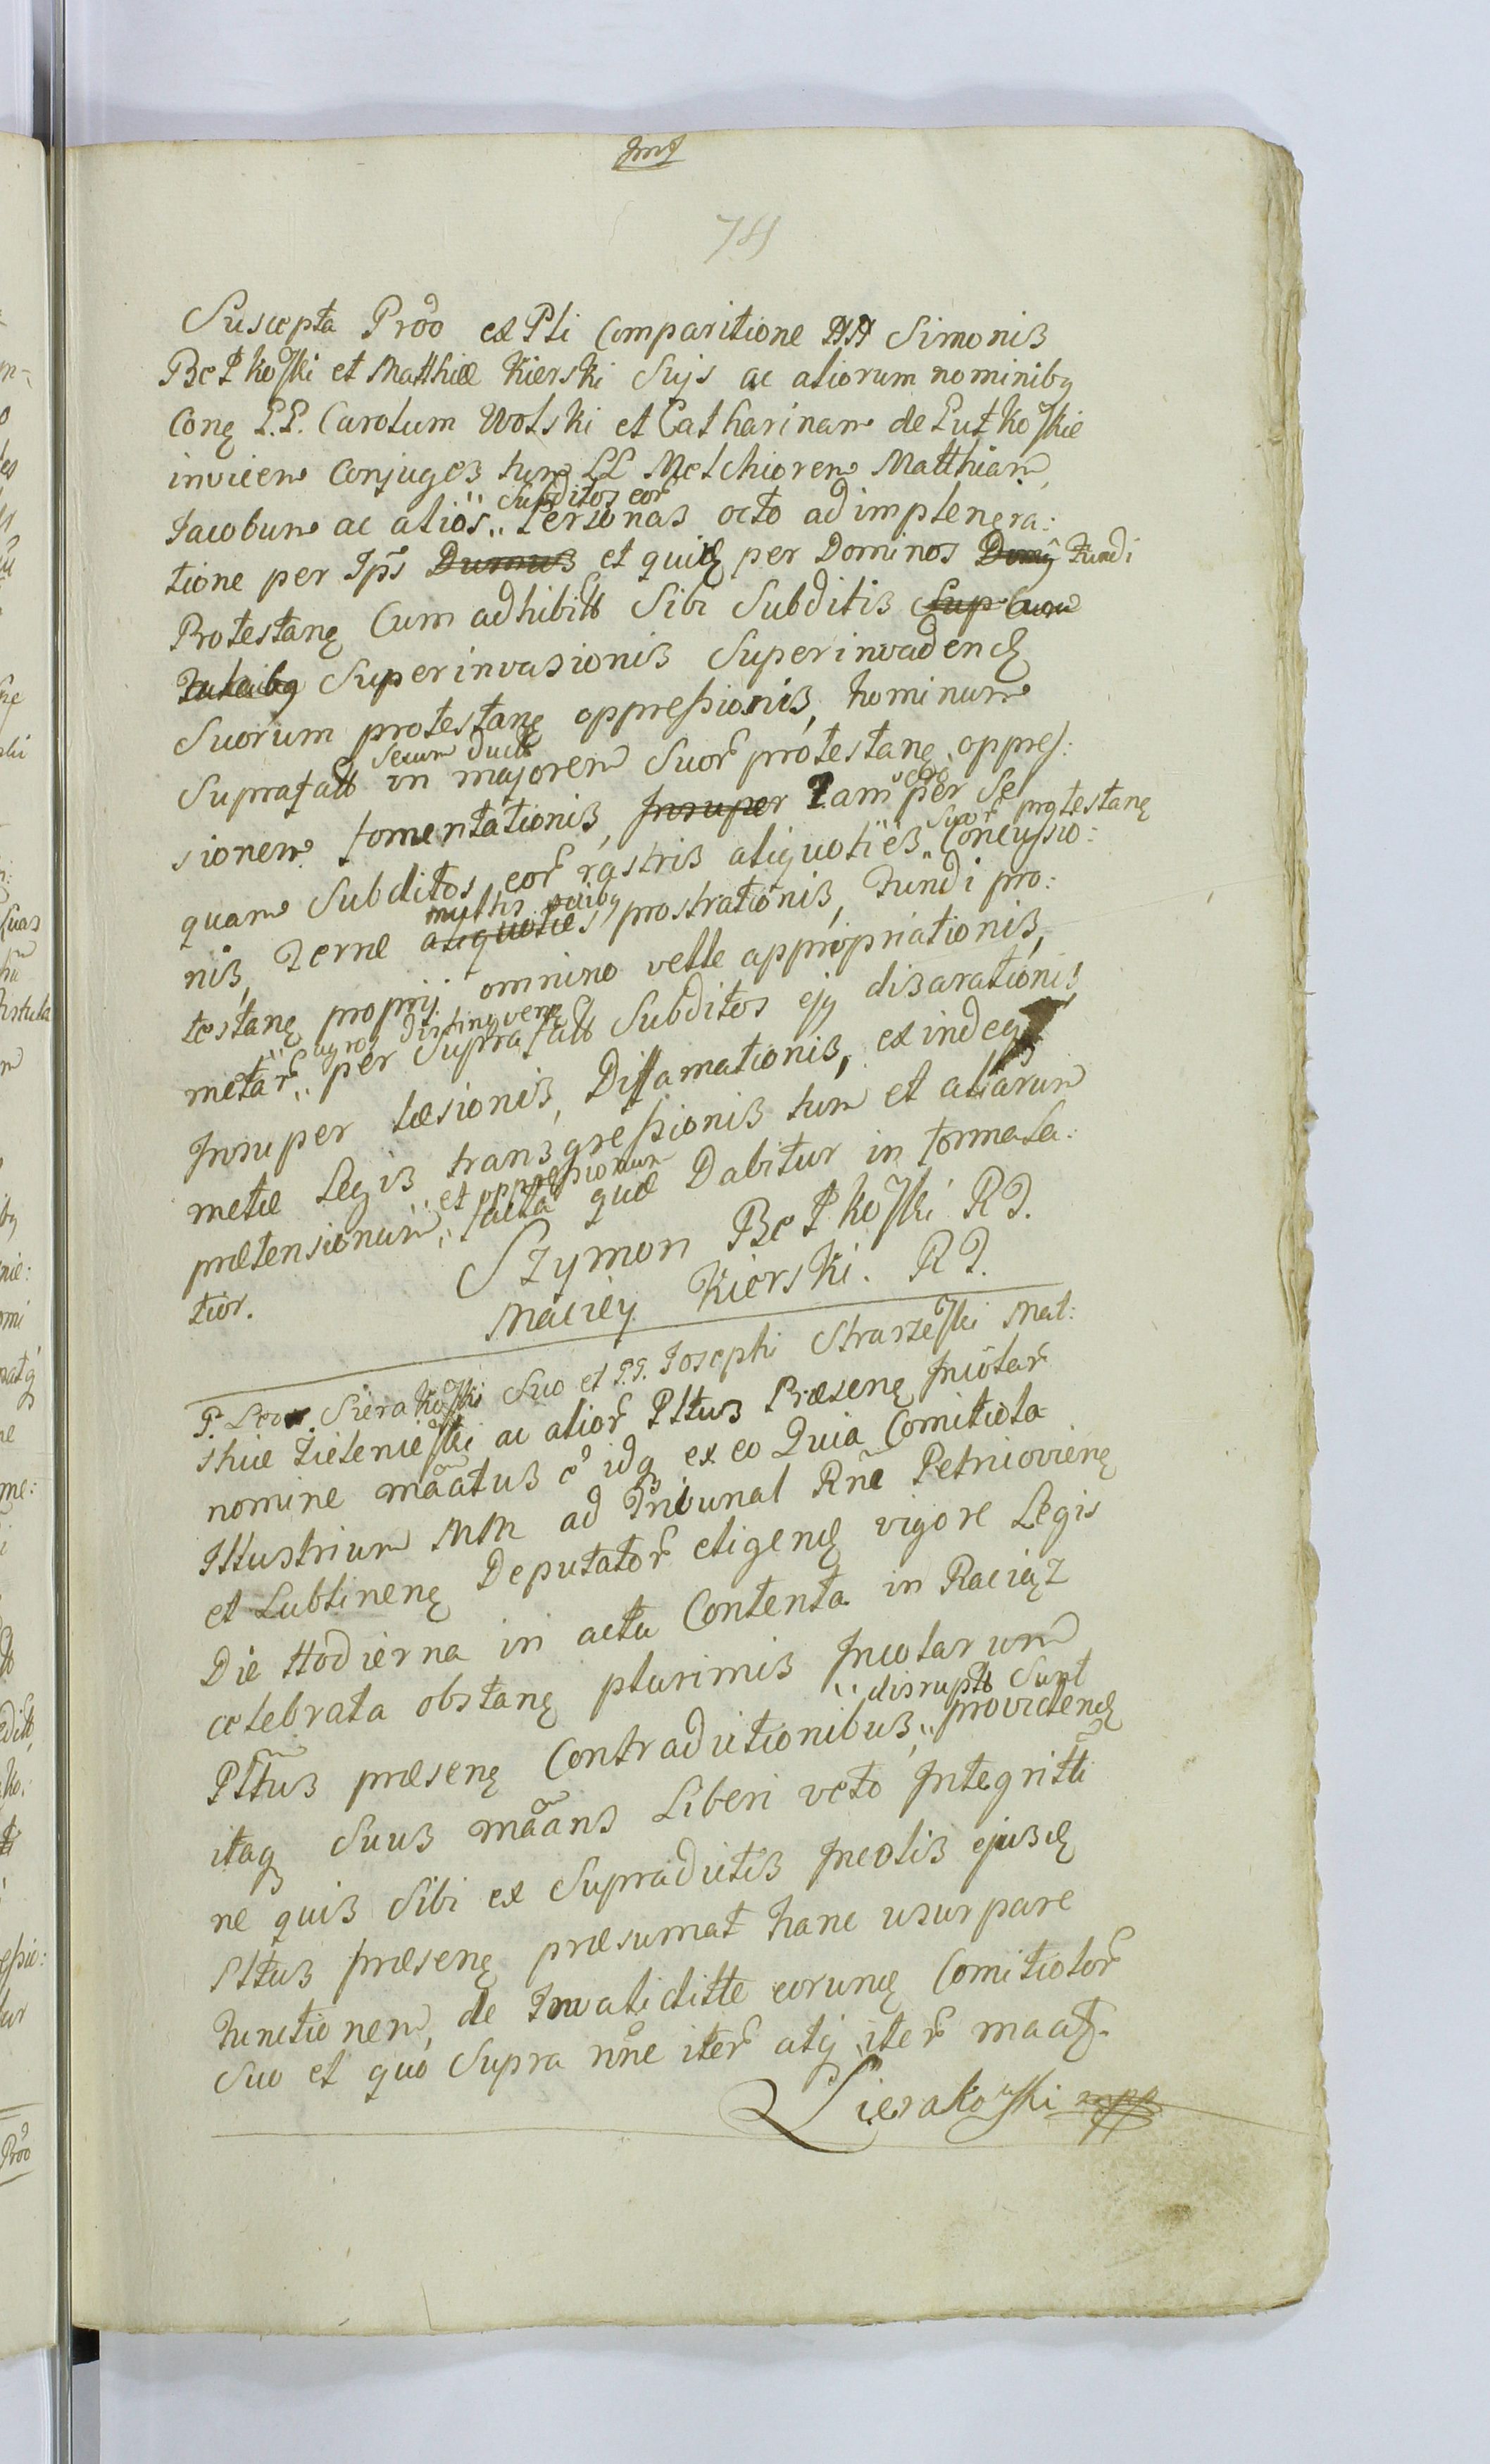 74
Suscepta Prõo ex Pli Comparitione NN Simonis
Bełkoski et Matthiæ Kierski Suis ac aliorum nominibq
Conę P.P. Carolum Wolski et Catharinam de Łutkoskie
invicem Conjuges tum LL Melchiorem Matthiam,
Jacobum ac alios Subditos eor Personas octo ad implen gra:
tione per Ips Dumus et quid per Dominos Fundi
Protestanę Cum adhibitt Sibi Subditis Sup Cum
Superinvasionis Superinvadend
Suorum protestanę oppressionis, hominum
Suprafatt Secum duct in majorem Suor protestanę oppres:
sionem fomentationis, Insuper Tam per Se
quam Subditos eor rastris aliquoties Suor protestanę Concussio:
nis, Terræ aliquoties multis prostrationis, Fundi pro:
testanę proprij omnino velle appropriationis,
metar agros distinqvenę per Suprafatt Subditos ejq disarationis
Insuper læsionis, Diffamationis, exindeq
metæ Legis transgressionis tum et aliarum
prætensionum et oppressionum facta quæ Dabitur in forma La:
tior.
Szymon Bełkoski R P.
Maciey Kierski. R P.
P. Leo Sierakoski Suo et P.P. Josephi Strarzeski Mat:
thiæ Zielenieski ac alior Plttus Præsenę Incolar
nomine mãatus idq ex eo Quia Comitiola
Illustrium MM ad Tribunal Rñe Petriovienę
et Lublinenę Deputator eligend vigore Legis
Die Hodierna in actu Contenta in Raciąz
celebrata obstanę plurimis Incolarum
Plttus præsenę Contradictionibus, disrupta Sunt providend
itaq Suus mãans Liberi veto Integritti
ne quis Sibi ex Supradictis Incolis ejusd
Plttus præsenę præsumat hanc usurpare
Functionem, de Invaliditte eorund Comitiolor
Suo et quo Supra nñe iter atq iter maat.
Sierakoski mpp